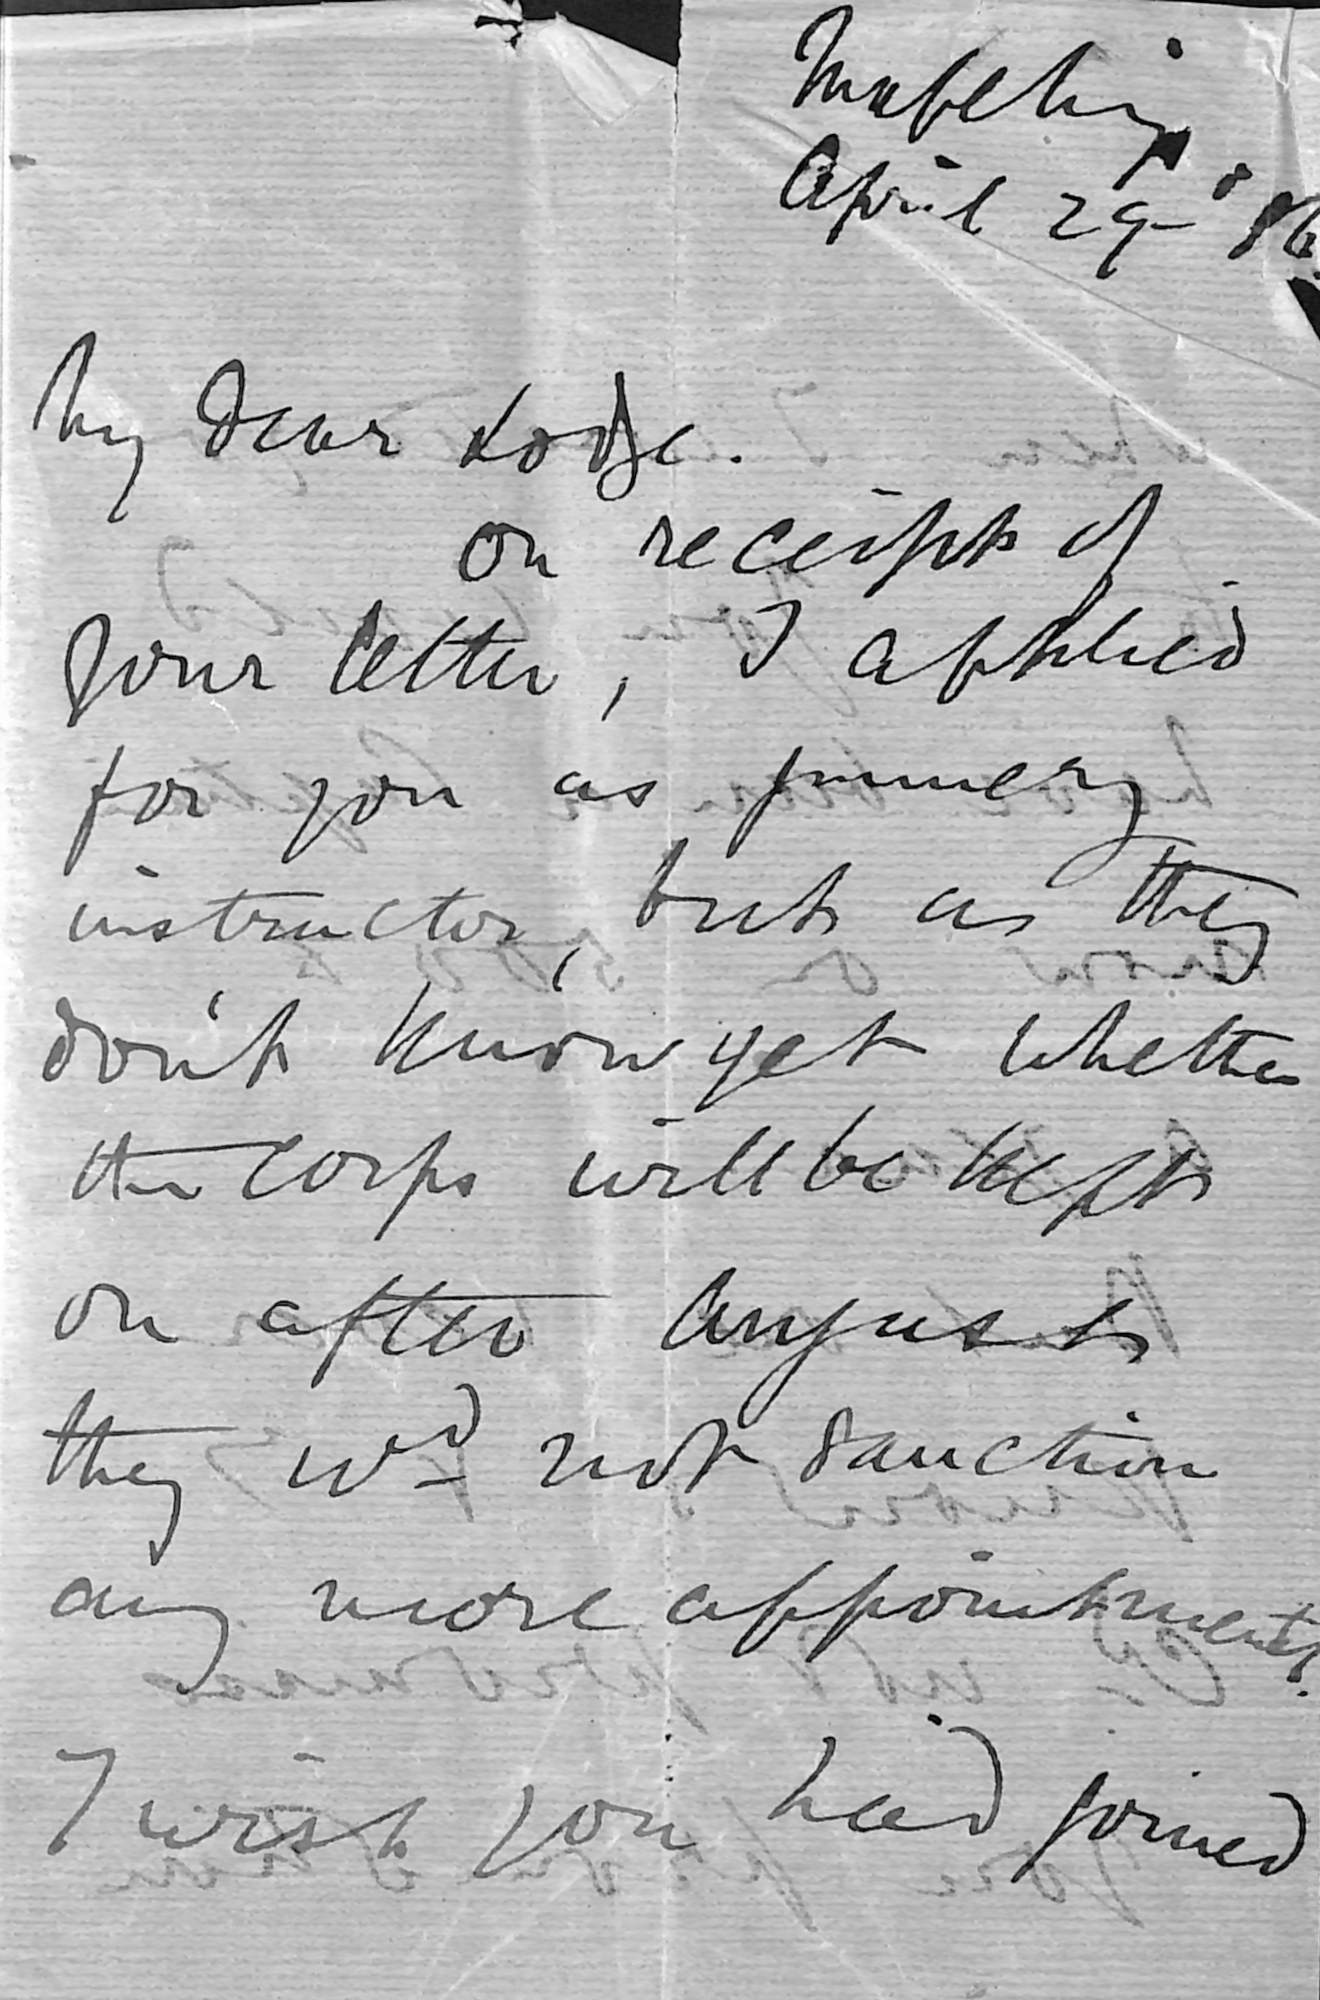 Mafeking
April 29 '86
My dear Lodge.
on receipt of
your letter, I applied
for you as gunnery
instructor, but as they
don't know yet whether
the corps will be kept
on after August
they wd not sanction
any more appointments.
I wish you had joined